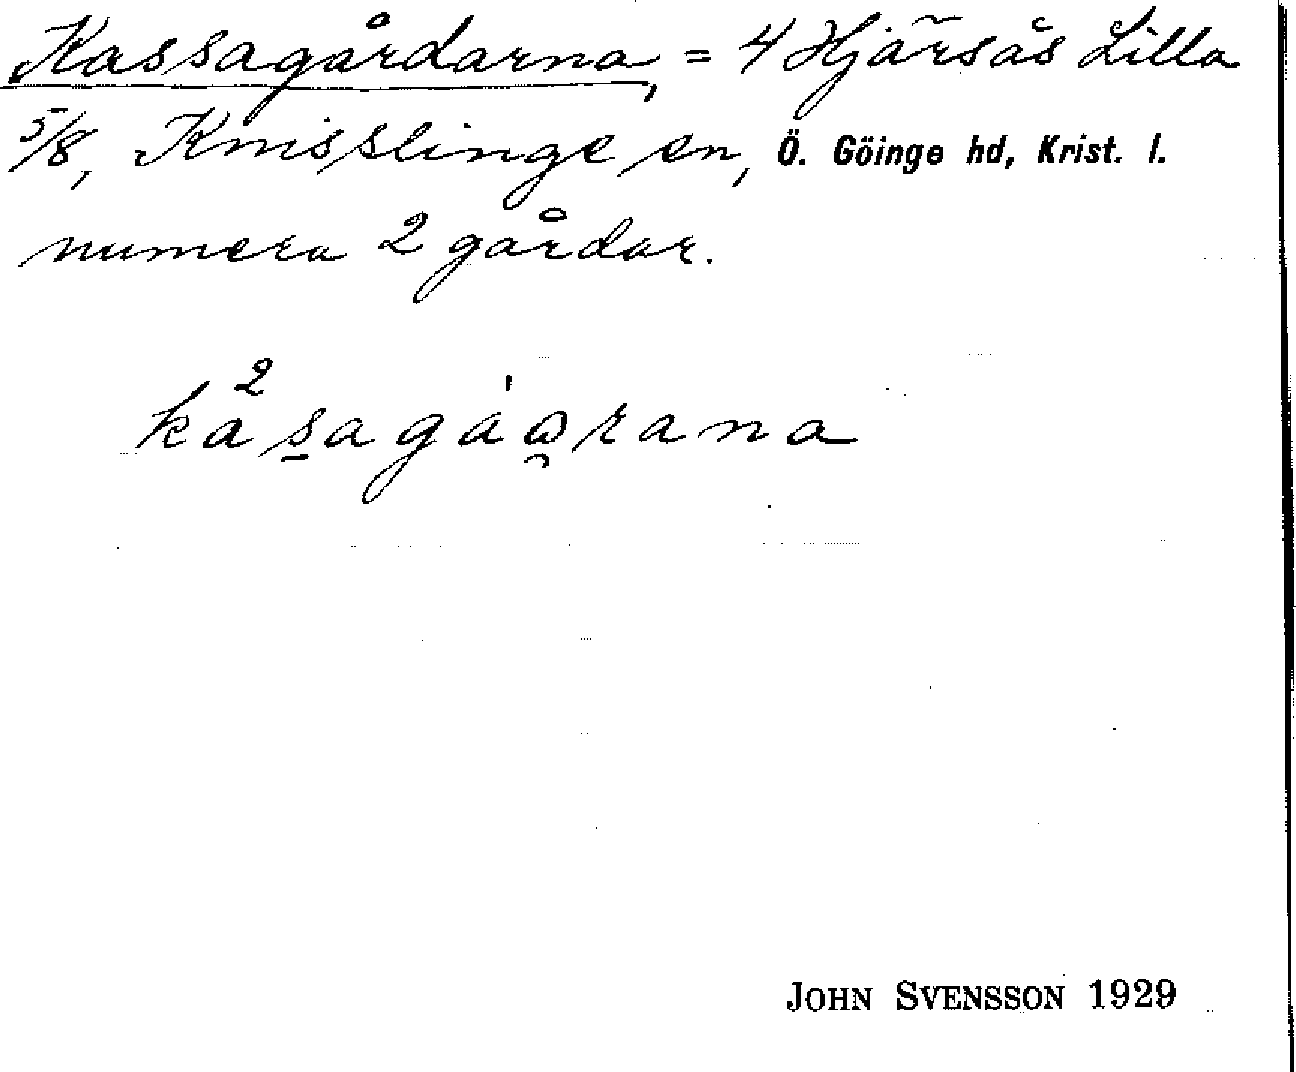 Kassagårdarna, = 4 Hjärsås Lilla
5/8, Knisslinge sn, Ö. Göinge hd, Krist. l.
numera 2 gårdar.
JOHN SVENSSON 1929